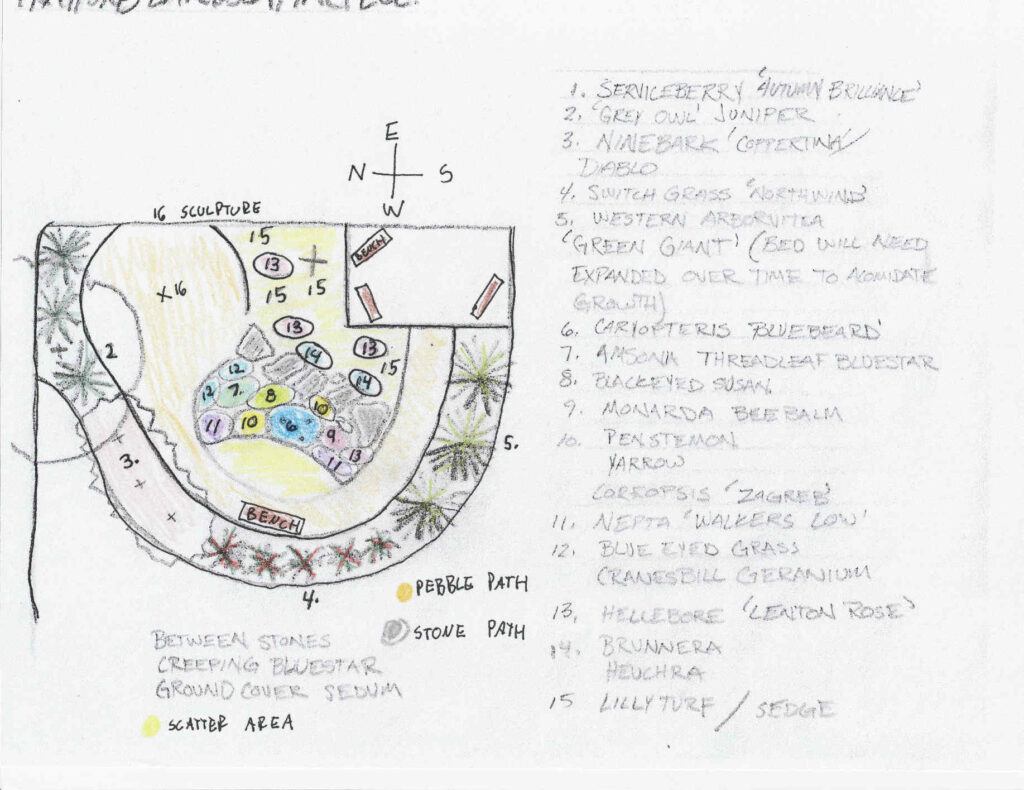 E
N S
W
16 SCULPTURE
15
13
15 15
BENCH
x16
13
14 13
15
14
2
12
12 7. 8
10
11 10 6 9.
13
11
3.
5.
BENCH
4.
PEBBLE PATH
STONE PATH
BETWEEN STONES
CREEPING BLUESTAR
GROUND COVER SEDUM
SCATTER AREA
1. SERVICEBERRY 'AUTUMN BRILLIANCE'
2. 'GREY OWL' JUNIPER
3. NINEBARK 'COPPERTINA'/
DIABLO
4. SWITCH GRASS 'NORTHWIND'
5. WESTERN ARBORVITEA
'GREEN GIANT' (BED WILL NEED
EXPANDED OVER TIME TO ACOMIDATE
GROWTH)
6. CARYOPTERIS 'BLUEBEARD'
7. AMSONIA THREADLEAF BLUESTAR
8. BLACKEYED SUSAN
9. MONARDA BEE BALM
10. PENSTEMON
YARROW
COREOPSIS 'ZAGREB'
11. NEPTA 'WALKERS LOW'
12. BLUE EYED GRASS
CRANESBILL GERANIUM
13. HELLEBORE 'LENTON ROSE'
14. BRUNNERA
HEUCHRA
15 LILLYTURF / SEDGE